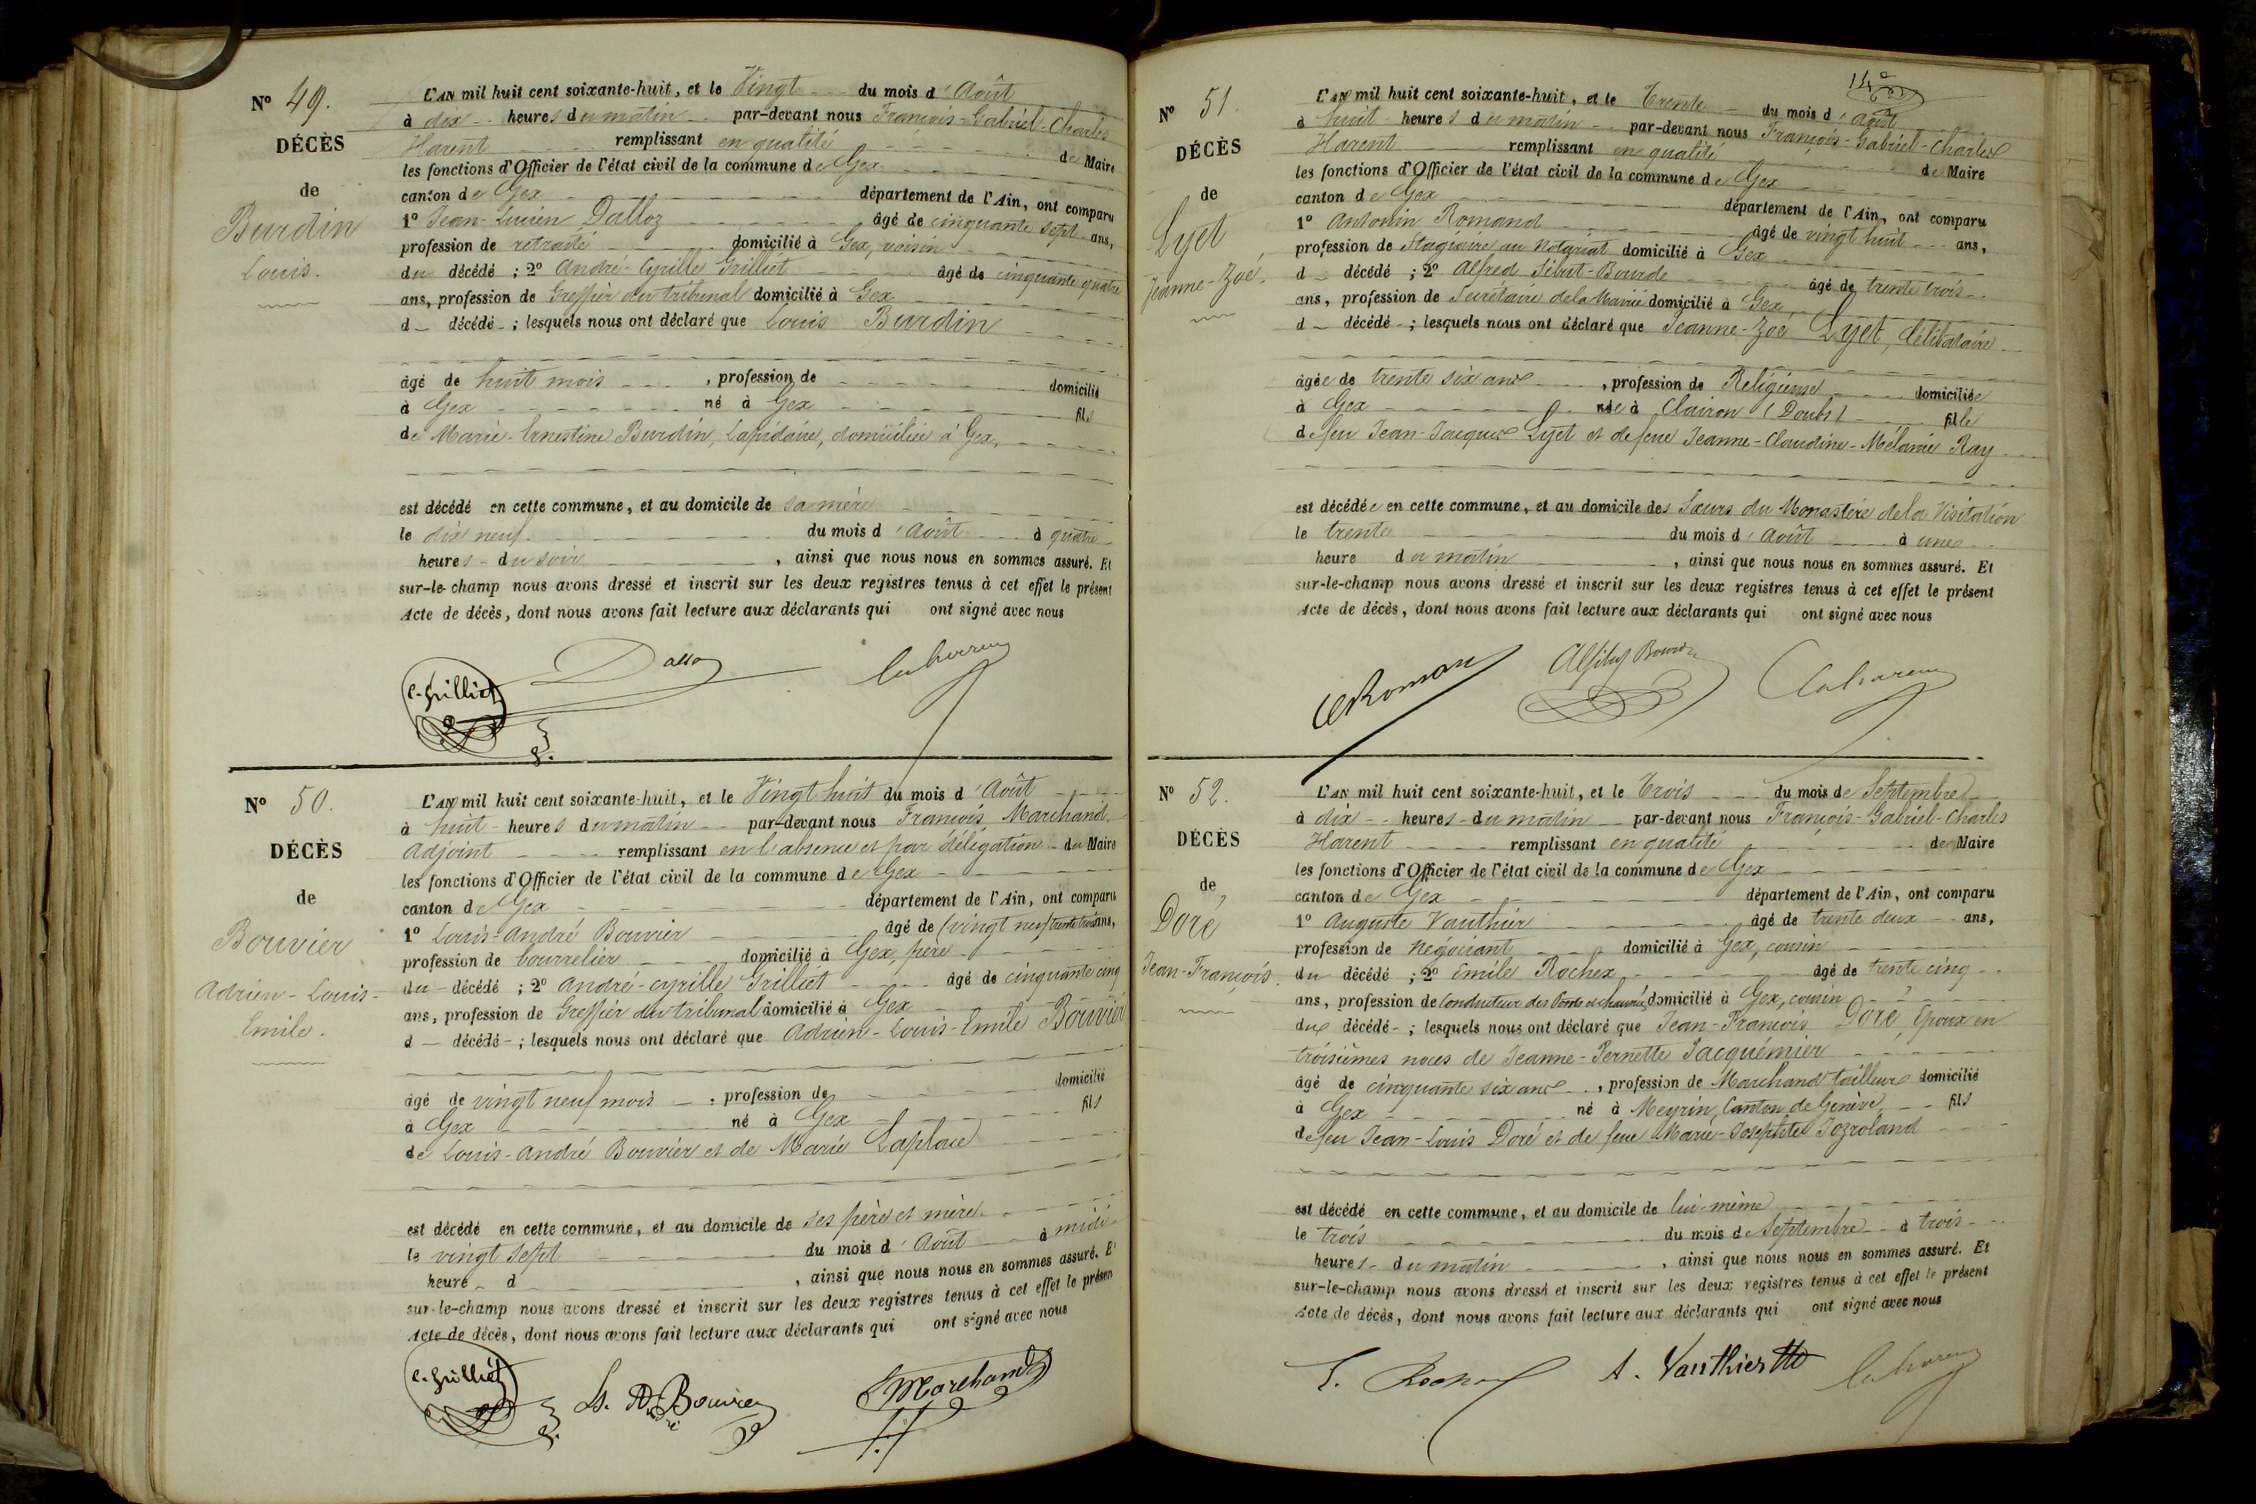 Nº 49.
DÉCÈS
de
Burdin
Louis.
L'AN mil huit cent soixante-huit, et le Vingt du mois d'Août
à dix heures du matin par-devant nous François-Gabriel-Charles
Harent remplissant en qualité de Maire
les fonctions d'Officier de l'état civil de la commune de Gex
canton de Gex département de l'Ain, ont comparu
1º Jean-Lucien Dalloz âgé de cinquante sept ans,
profession de retraité domicilié à Gex, voisin
du décédé ; 2º André-Cyrille Grilliet âgé de cinquante quatre
ans, profession de Greffier du tribunal domicilié à Gex
d décédé ; lesquels nous ont déclaré que Louis Burdin
âgé de huit mois , profession de domicilié
à Gex né à Gex fils
de Marie-Ernestine Burdin, Lapidaire, domiciliée à Gex,
est décédé en cette commune, et au domicile de sa mère
le dix neuf du mois d'Août à quatre
heures du soir , ainsi que nous nous en sommes assuré. Et
sur-le-champ nous avons dressé et inscrit sur les deux registres tenus à cet effet le présent
Acte de décès, dont nous avons fait lecture aux déclarants qui ont signé avec nous
C. Grilliet Dalloz
Nº 50.
DÉCÈS
de
Bouvier
Adrien-Louis-
Emile.
L'AN mil huit cent soixante-huit, et le Vingt huit du mois d'Août
à huit heures du matin par-devant nous François Marchand
Adjoint remplissant en l'absence et par délégation du Maire
les fonctions d'Officier de l'état civil de la commune de Gex
canton de Gex département de l'Ain, ont comparu
1º Louis-André Bouvier âgé de (vingt neuf trente trois ans,
profession de bourrelier domicilié à Gex, père
du décédé ; 2º André-Cyrille Grilliet âgé de cinquante cinq
ans, profession de Greffier du tribunal domicilié à Gex
d décédé ; lesquels nous ont déclaré que Adrien-Louis-Emile Bouvier
âgé de vingt neuf mois , profession de domicilié
à Gex né à Gex fils
de Louis-André Bouvier et de Marie Laplace
est décédé en cette commune, et au domicile de ses père et mère.
le vingt sept du mois d'Août à midi
heure d , ainsi que nous nous en sommes assuré. Et
sur-le-champ nous avons dressé et inscrit sur les deux registres tenus à cet effet le présent
Acte de décès, dont nous avons fait lecture aux déclarants qui ont signé avec nous
C. Grilliet Ls. André Bouvier Marchand
Nº 51.
DÉCÈS
de
Lyet,
Jeanne-Zoé.
L'AN mil huit cent soixante-huit, et le Trente du mois d'Août
à huit heures du matin par-devant nous François-Gabriel-Charles
Harent remplissant en qualité de Maire
les fonctions d'Officier de l'état civil de la commune de Gex
canton de Gex département de l'Ain, ont comparu
1º Antonin Romand âgé de vingt huit ans,
profession de Stagiaire au Notariat domicilié à Gex
d décédé ; 2º Alfred Sibut-Bourde âgé de trente trois
ans, profession de Secrétaire de la Mairie domicilié à Gex
d décédé ; lesquels nous ont déclaré que Jeanne-Zoé Lyet, célibataire
âgée de trente six ans , profession de Religieuse domiciliée
à Gex née à Clairon (Doubs) fille
de feu Jean-Jacques Lyet et de feue Jeanne-Claudine-Mélanie Ray
est décédée en cette commune, et au domicile des Sœurs du Monastère de la Visitation
le trente du mois d'Août à une
heure du matin , ainsi que nous nous en sommes assuré. Et
sur-le-champ nous avons dressé et inscrit sur les deux registres tenus à cet effet le présent
Acte de décès, dont nous avons fait lecture aux déclarants qui ont signé avec nous
Nº 52.
DÉCÈS
de
Doré
Jean-François.
L'AN mil huit cent soixante-huit, et le Trois du mois de Septembre
à dix heures du matin par-devant nous François-Gabriel-Charles
Harent remplissant en qualité de Maire
les fonctions d'Officier de l'état civil de la commune de Gex
canton de Gex département de l'Ain, ont comparu
1º Auguste Vauthier âgé de trente deux ans,
profession de Négociant domicilié à Gex, cousin
du décédé ; 2º Emile Rochex âgé de trente cinq
ans, profession de Conducteur des Ponts et chaussées domicilié à Gex, cousin
du décédé ; lesquels nous ont déclaré que Jean-François Doré, Epoux en
troisièmes noces de Jeanne-Pernette Jacquémier
âgé de cinquante six ans , profession de Marchand tailleur domicilié
à Gex né à Meyrin, Canton de Genève, fils
de feu Jean-Louis Doré et de feue Marie-Josephte Jozroland
est décédé en cette commune, et au domicile de lui-même
le trois du mois de Septembre à trois
heures du matin , ainsi que nous nous en sommes assuré. Et
sur-le-champ nous avons dressé et inscrit sur les deux registres tenus à cet effet le présent
Acte de décès, dont nous avons fait lecture aux déclarants qui ont signé avec nous
A. Vauthier